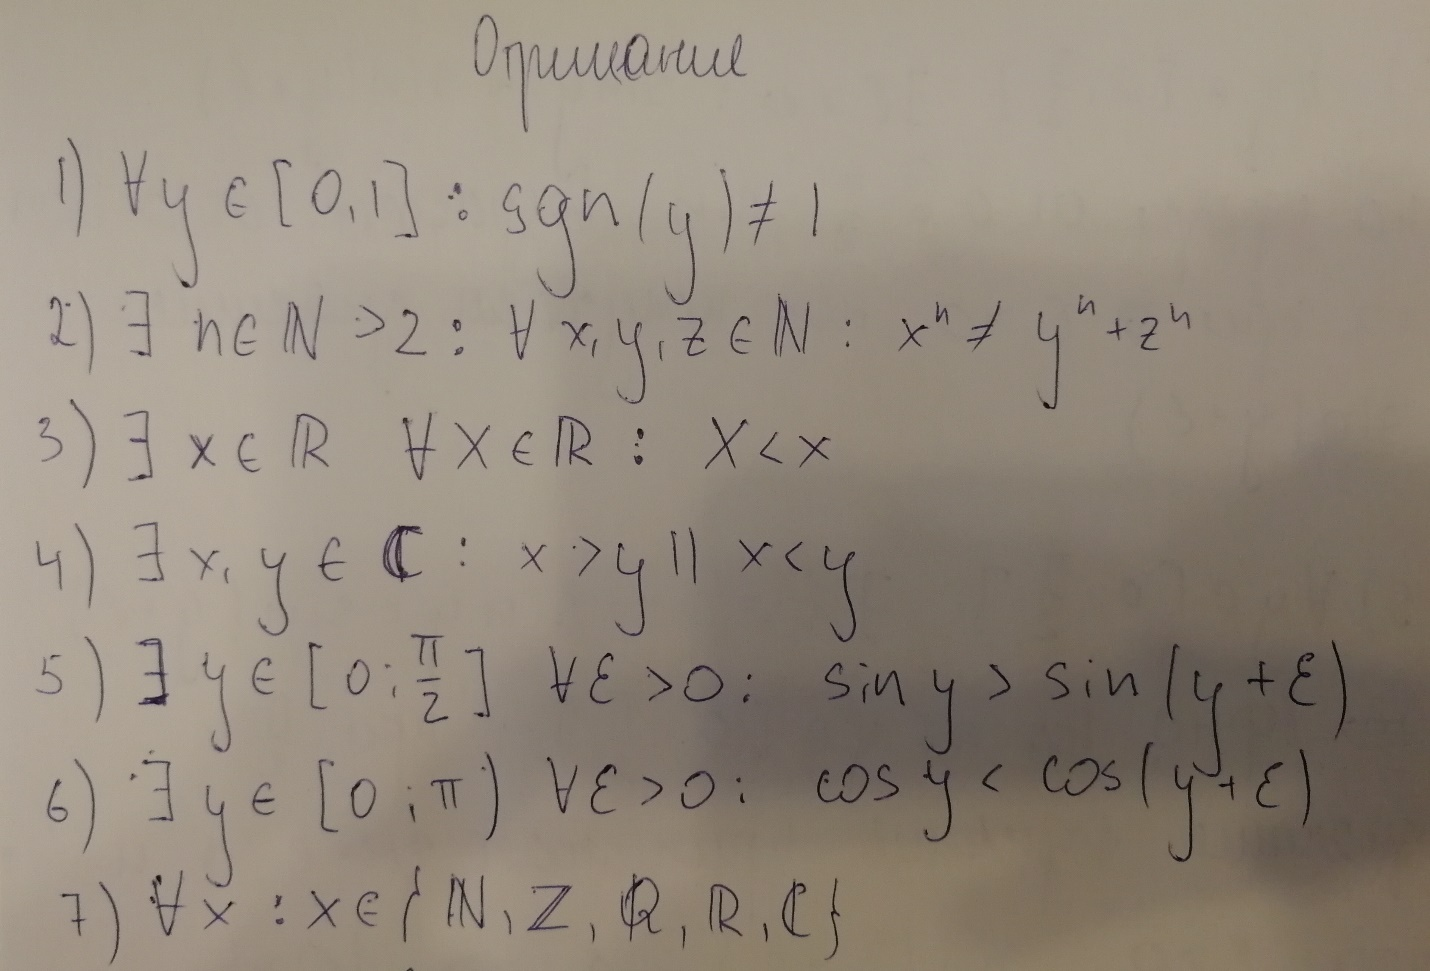 Отрицание
1) ∀y ∈ [0,1] : sgn(y) ≠ 1
2) ∃ n ∈ ℕ > 2 : ∀ x, y, z ∈ ℕ : xⁿ ≠ yⁿ + zⁿ
3) ∃ x ∈ ℝ ∀ X ∈ ℝ : X < x
4) ∃ x, y ∈ ℂ : x > y || x < y
5) ∃ y ∈ [0; π/2] ∀ε > 0 : sin y > sin (y + ε)
6) ∃ y ∈ [0; π) ∀ε > 0 : cos y < cos (y + ε)
7) ∀ x : x ∈ {ℕ, ℤ, ℚ, ℝ, ℂ}